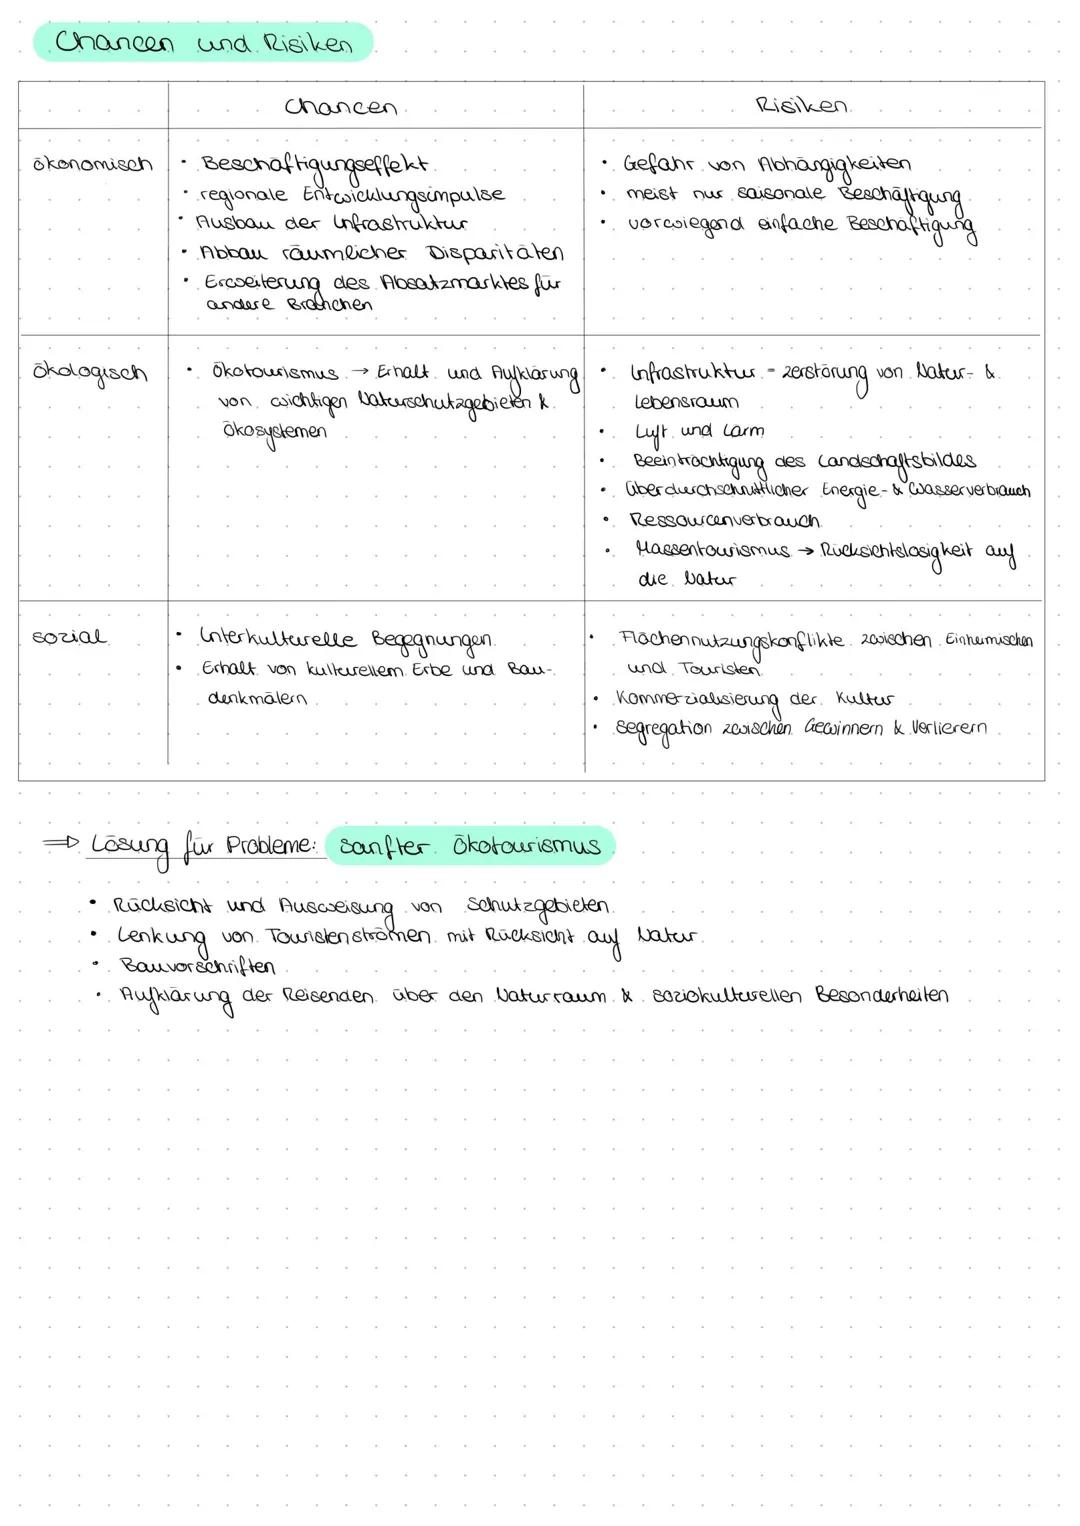 Chancen und Risiken
Chancen
Risiken
ökonomisch
• Beschäftigungseffekt
• regionale Entwicklungsimpulse
• Ausbau der Infrastruktur
• Abbau räumlicher Disparitäten
• Erweiterung des Absatzmarktes für
andere Branchen
• Gefahr von Abhängigkeiten
• meist nur saisonale Beschäftigung
• vorwiegend einfache Beschäftigung
ökologisch
• Ökotourismus → Erhalt und Aufklärung
von wichtigen Naturschutzgebieten &
Ökosystemen
• Infrastruktur - zerstörung von Natur- &
Lebensraum
• Luft und Lärm
• Beeinträchtigung des Landschaftsbildes
• überdurchschnittlicher Energie- & Wasserverbrauch
• Ressourcenverbrauch
• Massentourismus → Rücksichtslosigkeit auf
die Natur
sozial
• Interkulturelle Begegnungen
• Erhalt von kulturellem Erbe und Bau-
denkmälern
• Flächennutzungskonflikte zwischen Einheimischen
und Touristen
• Kommerzialisierung der Kultur
• Segregation zwischen Gewinnern & Verlierern
⇒ Lösung für Probleme: sanfter Ökotourismus
• Rücksicht und Ausweisung von Schutzgebieten
• Lenkung von Touristenströmen mit Rücksicht auf Natur
• Bauvorschriften
• Aufklärung der Reisenden über den Naturraum & soziokulturellen Besonderheiten